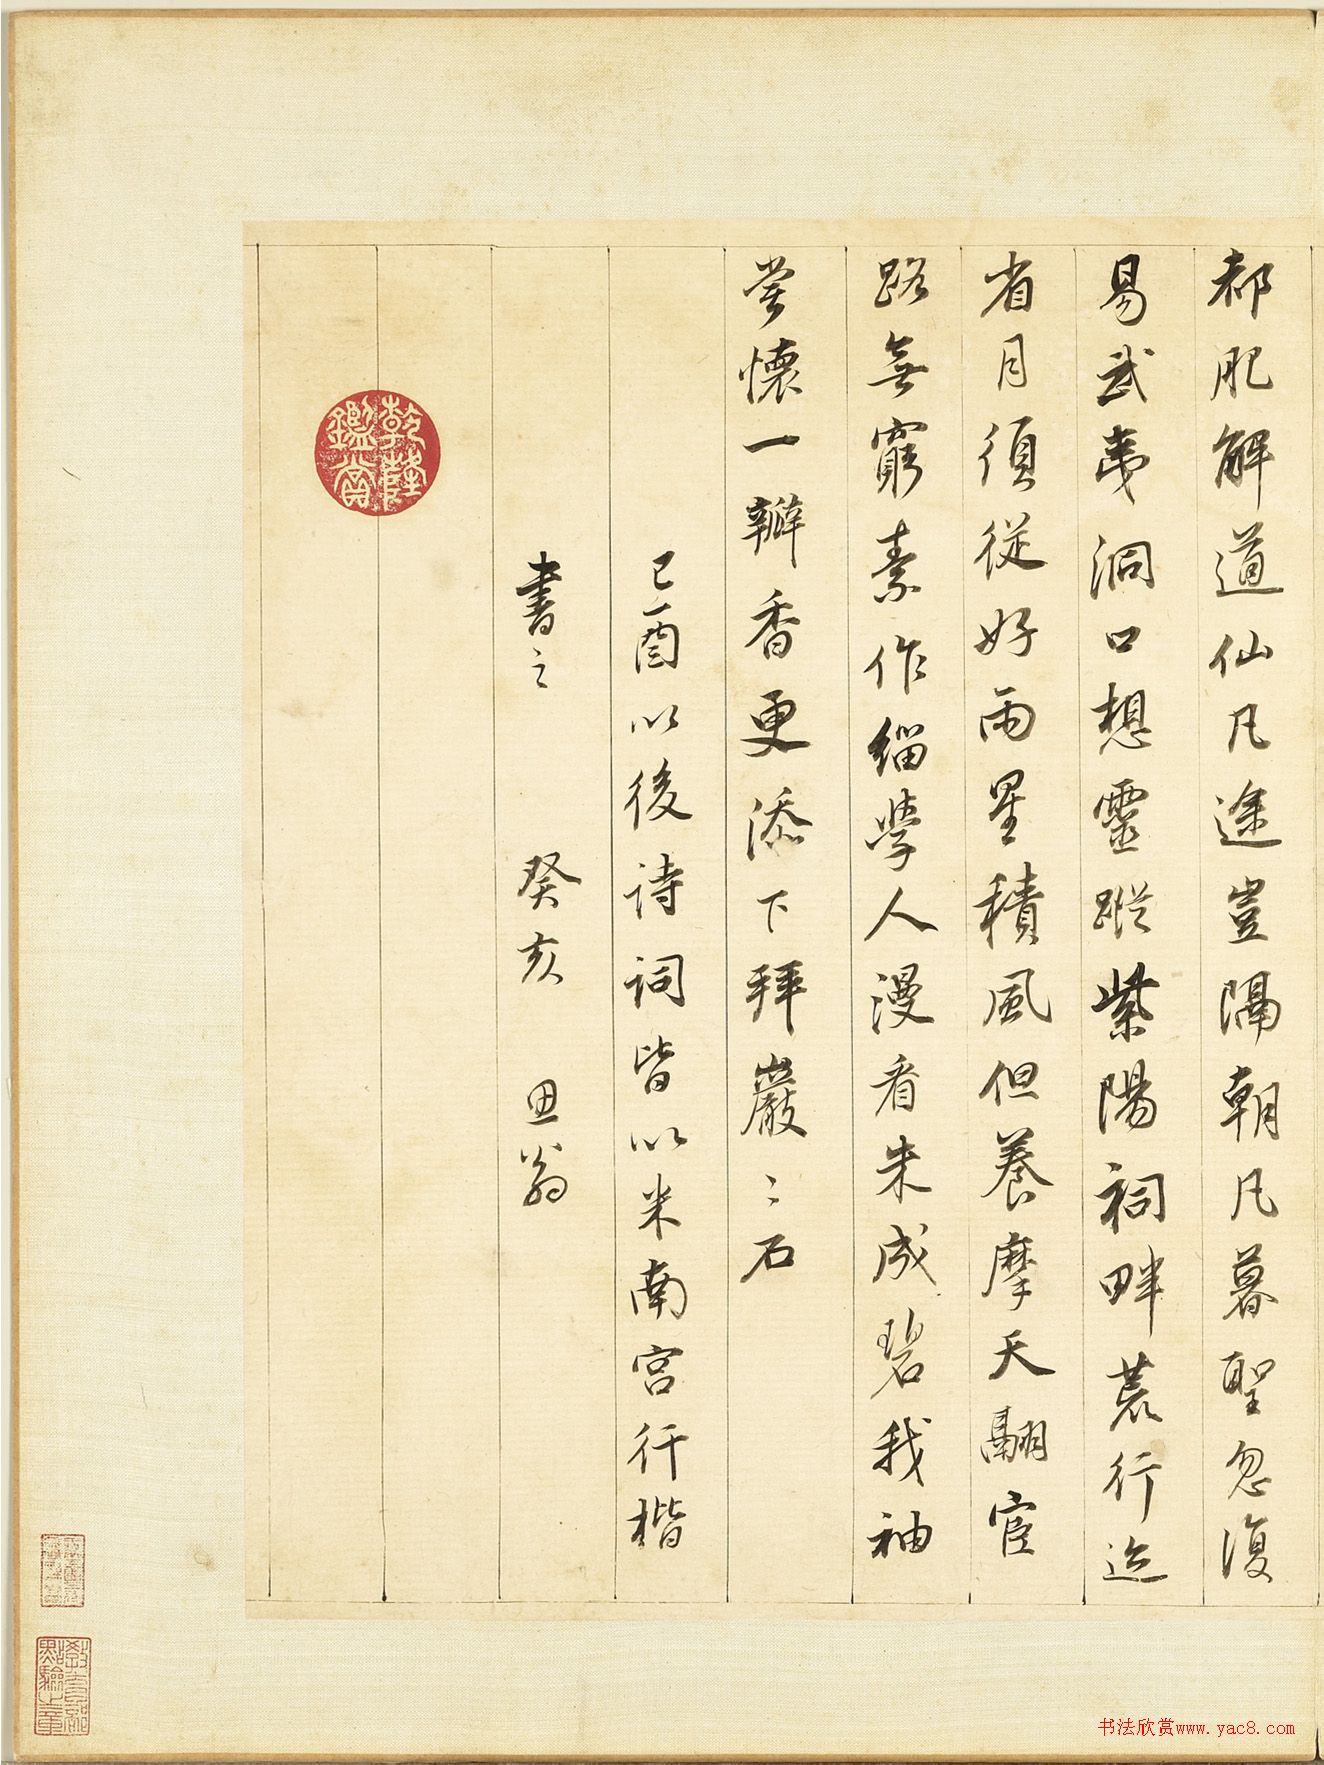 都肥解道仙凡途豈隔朝凡暮聖忽復
易武夷洞口想靈蹤紫陽祠畔荒行迹
省月須從好雨星積風但養摩天翮宦
路無窮素作緇學人漫看朱成碧我袖
常懷一瓣香更添下拜巖〻石
己酉以後詩詞皆以米南宮行楷
書之　癸亥　思翁
乾隆
鑑賞
教育部
點驗之章
书法欣赏www.yac8.com